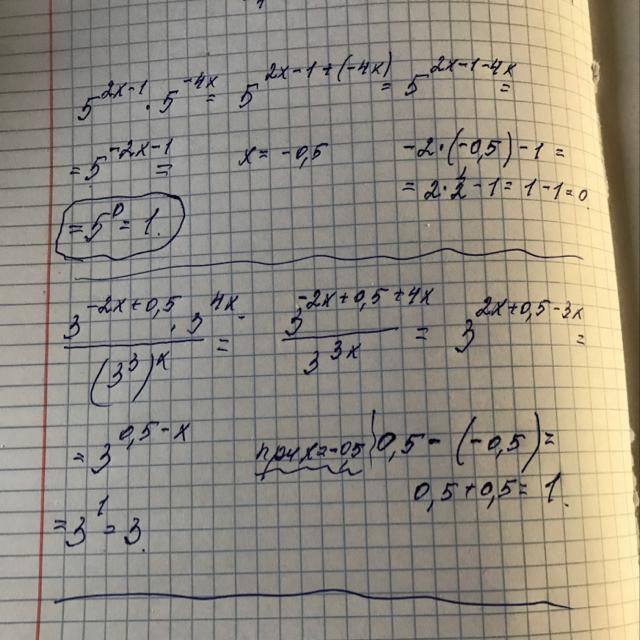 5^{2x-1} · 5^{-4x} = 5^{2x-1+(-4x)} = 5^{2x-1-4x} =
= 5^{-2x-1} =   x = -0,5   -2·(-0,5)-1 =
= 2·\frac{1}{2}-1 = 1-1=0
= 5^{0} = 1.
\frac{3^{-2x+0,5} · 3^{4x}}{(3^{3})^{x}} = \frac{3^{-2x+0,5+4x}}{3^{3x}} = 3^{2x+0,5-3x} =
= 3^{0,5-x}   при x=-0,5   0,5-(-0,5)=
0,5+0,5=1.
= 3^{1} = 3.